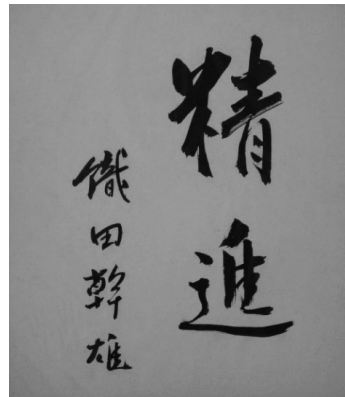 精進
織田幹雄